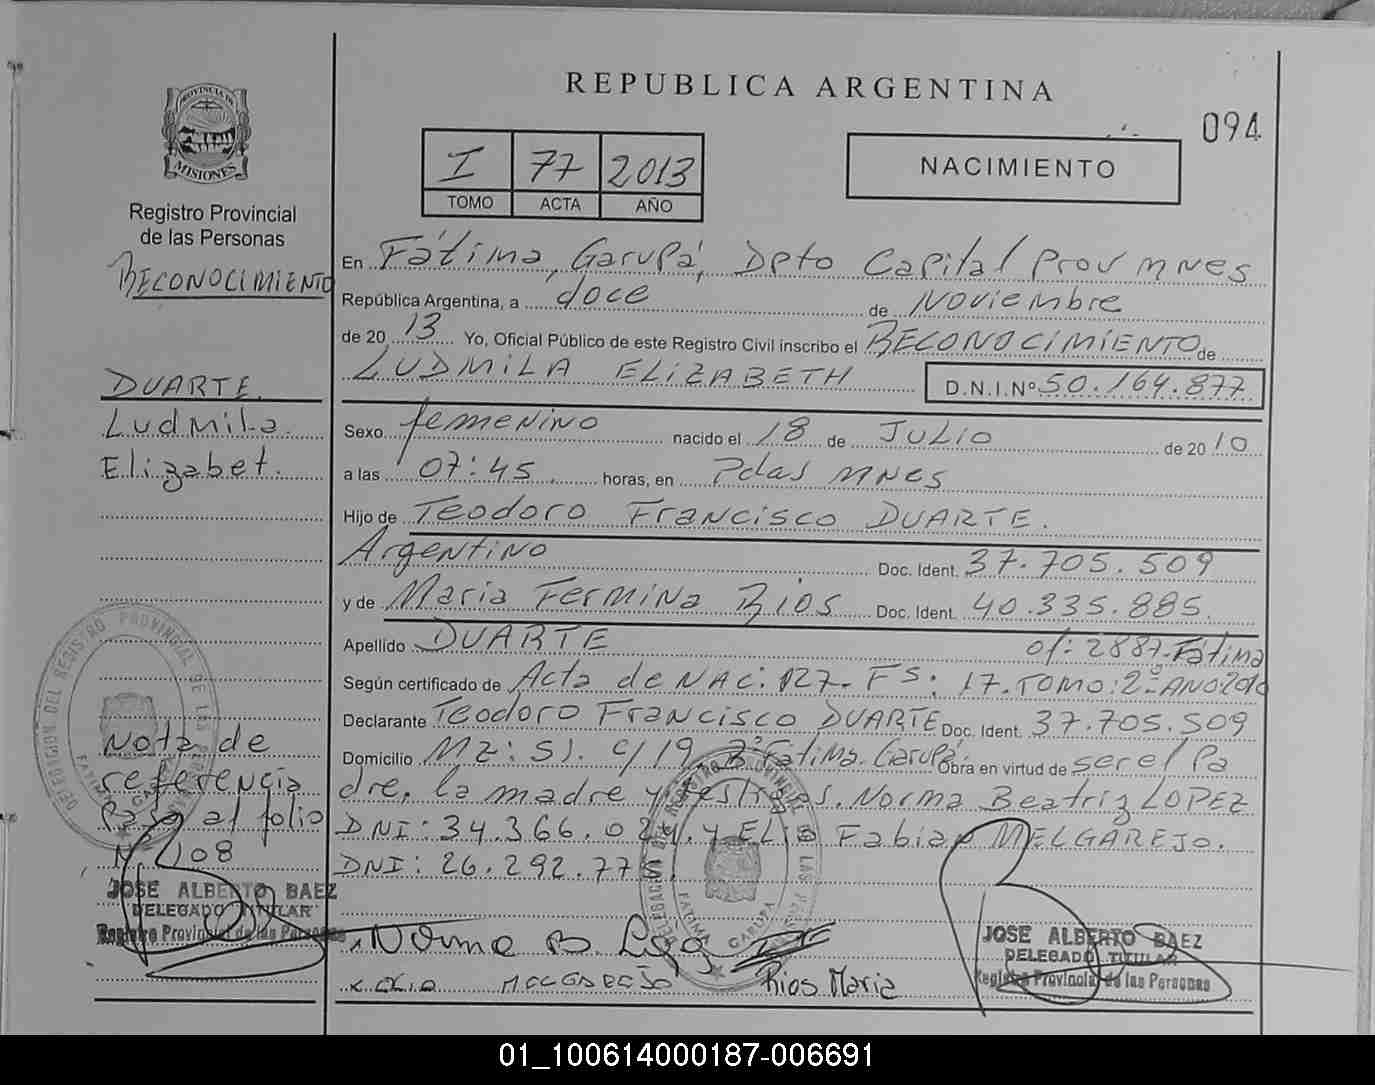 REPUBLICA ARGENTINA
094
PROVINCIA DE
MISIONES
Registro Provincial
de las Personas
RECONOCIMIENTO
DUARTE.
Ludmila
Elizabet.
Nota de
referencia
Pasa al folio
Nº 108
JOSE ALBERTO BAEZ
DELEGADO TITULAR
Registro Provincial de las Personas
I 77 2013
TOMO ACTA AÑO
NACIMIENTO
En Fátima, Garupá, Dpto Capital Prov MNES
República Argentina, a doce de Noviembre
de 20 13 Yo, Oficial Público de este Registro Civil inscribo el RECONOCIMIENTO de
LUDMILA ELIZABETH D.N.I.Nº 50.164.877
Sexo femenino nacido el 18 de JULIO de 20 10
a las 07:45 horas, en Pdas MNES
Hijo de Teodoro Francisco DUARTE.
Argentino Doc. Ident. 37.705.509
y de Maria Fermina Rios Doc. Ident. 40.335.885.
Apellido DUARTE of: 2887-Fatima
Según certificado de Acta de NAC: 127- Fs: 17. TOMO: 2º AÑO 2010
Declarante Teodoro Francisco DUARTE Doc. Ident. 37.705.509
Domicilio Mz: 51. c/19 Bº Fatima. Garupá. Obra en virtud de ser el Pa
dre, la madre y testigos. Norma Beatriz LOPEZ
DNI: 34.366.021. y ELIO Fabian MELGAREJO.
DNI: 26.292.775.
Norma B. Lopez
ELIO MELGAREJO
Rios Maria
JOSE ALBERTO BAEZ
DELEGADO TITULAR
Registro Provincial de las Personas
DELEGACION DEL REGISTRO PROVINCIAL DE LAS PERSONAS
FATIMA GARUPA
DELEGACION DEL REGISTRO PROVINCIAL DE LAS PERSONAS
FATIMA GARUPA
01_100614000187-006691